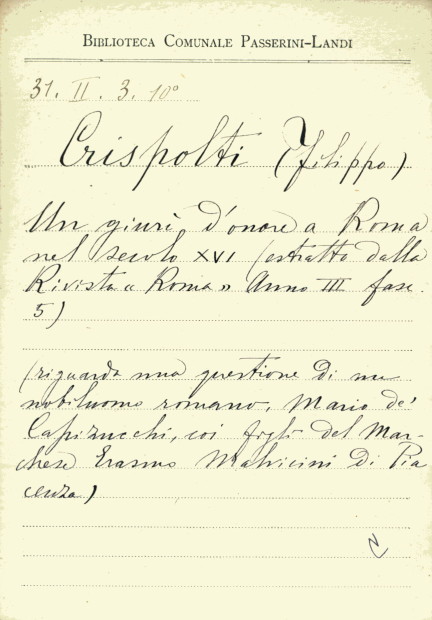 BIBLIOTECA COMUNALE PASSERINI-LANDI
31. II. 3. 10°
Crispolti (Filippo)
Un giurì d'onore a Roma
nel secolo XVI (estratto dalla
Rivista "Roma" Anno IIII fasc.
5)
(riguarda una questione di un
nobiluomo romano, Mario de'
Capizucchi, coi figli del Mar-
chese Erasmo Malvicini di Pia
cenza)